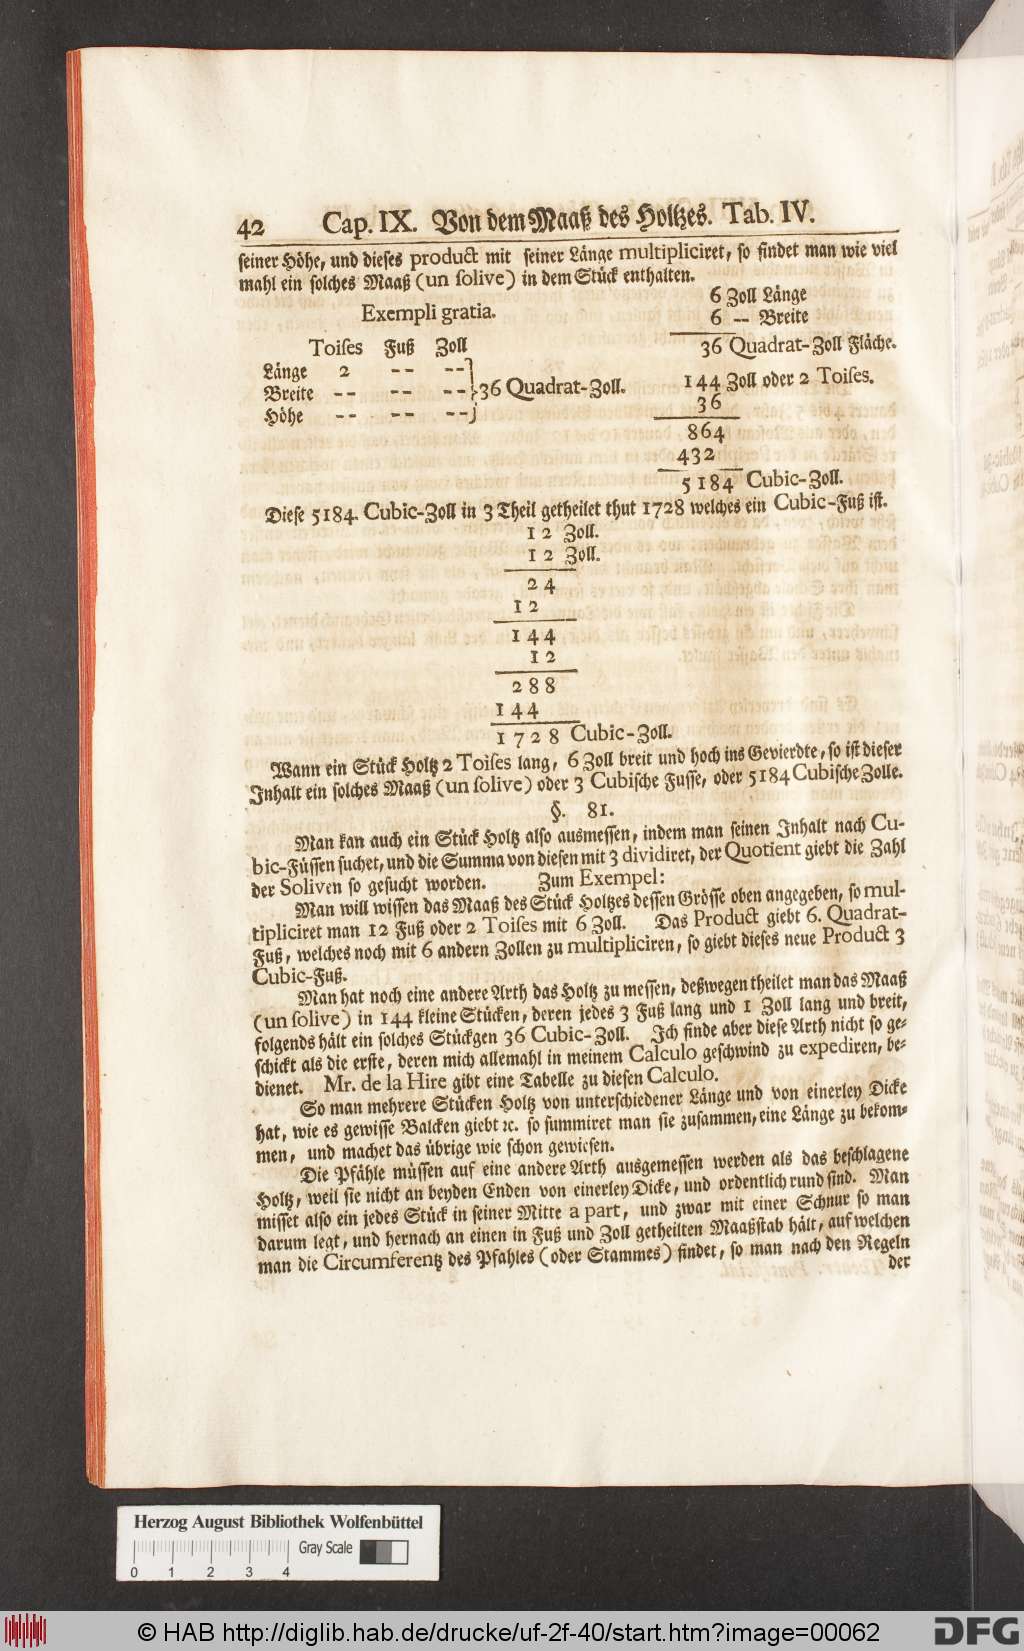 42 Cap. IX. Von dem Maaß des Holtzes. Tab. IV.
seiner Höhe, und dieses product mit seiner Länge multipliciret, so findet man wie viel
mahl ein solches Maaß (un solive) in dem Stück enthalten.
Exempli gratia.
6 Zoll Länge
6 -- Breite
36 Quadrat-Zoll Fläche.
Toises Fuß Zoll
Länge 2 -- --
Breite -- -- -- 36 Quadrat-Zoll.
Höhe -- -- --
144 Zoll oder 2 Toises.
36
864
432
5184 Cubic-Zoll.
Diese 5184. Cubic-Zoll in 3 Theil getheilet thut 1728 welches ein Cubic-Fuß ist.
12 Zoll.
12 Zoll.
24
12
144
12
288
144
1728 Cubic-Zoll.
Wann ein Stück Holtz 2 Toises lang, 6 Zoll breit und hoch ins Gevierdte, so ist dieser
Inhalt ein solches Maaß (un solive) oder 3 Cubische Fusse, oder 5184 Cubische Zolle.
§. 81.
Man kan auch ein Stück Holtz also ausmessen, indem man seinen Inhalt nach Cu-
bic-Füssen suchet, und die Summa von diesen mit 3 dividiret, der Quotient giebt die Zahl
der Soliven so gesucht worden. Zum Exempel:
Man will wissen das Maaß des Stück Holtzes dessen Grösse oben angegeben, so mul-
tipliciret man 12 Fuß oder 2 Toises mit 6 Zoll. Das Product giebt 6. Quadrat-
Fuß, welches noch mit 6 andern Zollen zu multipliciren, so giebt dieses neue Product 3
Cubic-Fuß.
Man hat noch eine andere Arth das Holtz zu messen, deßwegen theilet man das Maaß
(un solive) in 144 kleine Stücken, deren jedes 3 Fuß lang und 1 Zoll lang und breit,
folgends hält ein solches Stückgen 36 Cubic-Zoll. Ich finde aber diese Arth nicht so ge-
schickt als die erste, deren mich allemahl in meinem Calculo geschwind zu expediren, be-
dienet. Mr. de la Hire gibt eine Tabelle zu diesen Calculo.
So man mehrere Stücken Holtz von unterschiedener Länge und von einerley Dicke
hat, wie es gewisse Balcken giebt ꝛc. so summiret man sie zusammen, eine Länge zu bekom-
men, und machet das übrige wie schon gewiesen.
Die Pfähle müssen auf eine andere Arth ausgemessen werden als das beschlagene
Holtz, weil sie nicht an beyden Enden von einerley Dicke, und ordentlich rund sind. Man
misset also ein jedes Stück in seiner Mitte a part, und zwar mit einer Schnur so man
darum legt, und hernach an einen in Fuß und Zoll getheilten Maaßstab hält, auf welchen
man die Circumferentz des Pfahles (oder Stammes) findet, so man nach den Regeln
der
Herzog August Bibliothek Wolfenbüttel
Gray Scale
0 1 2 3 4
© HAB http://diglib.hab.de/drucke/uf-2f-40/start.htm?image=00062
DFG